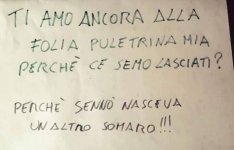 TI AMO ANCORA ALLA
FOLIA PULETRINA MIA
PERCHÈ CE SEMO LASCIATI?
PERCHÈ SENNÒ NASCEVA
UN ALTRO SOMARO!!!